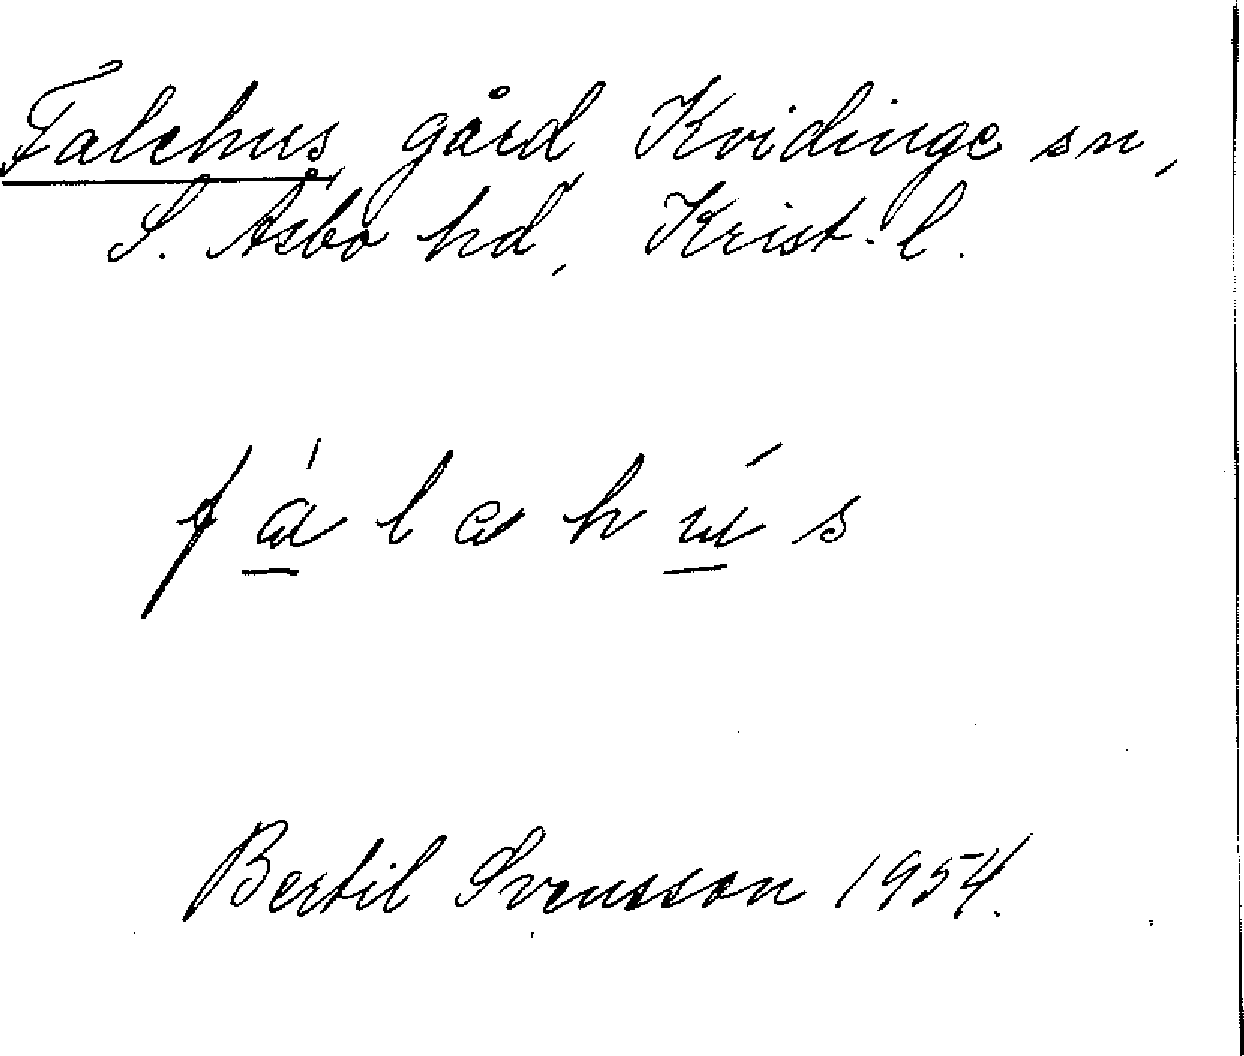 Falehus, gård Kvidinge sn,
S. Åsbo hd, Krist. l.
fálahús
Bertil Svensson 1954.